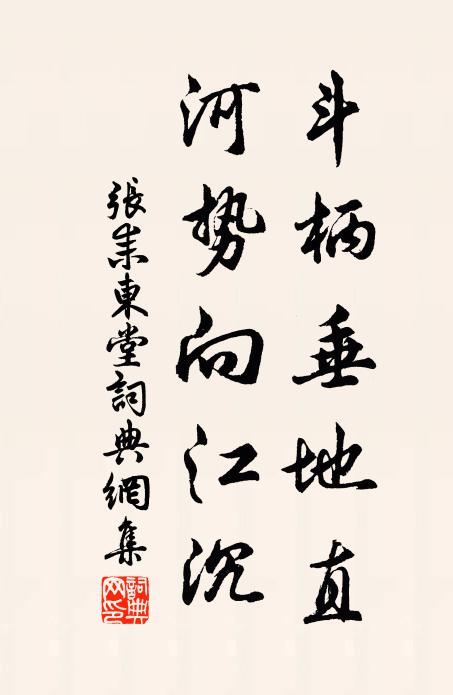 斗柄垂地直
河势向江沉
張耒東堂詞典網集
詞典網印